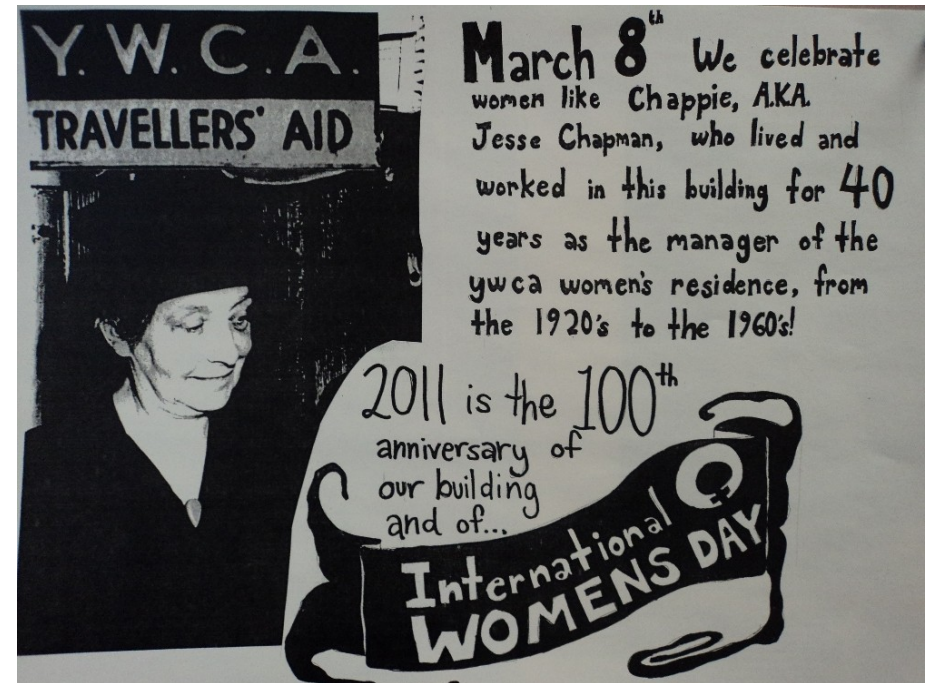 Y. W. C. A.
TRAVELLERS' AID
March 8th We celebrate
women like Chappie, A.K.A.
Jesse Chapman, who lived and
worked in this building for 40
years as the manager of the
ywca women's residence, from
the 1920's to the 1960's!
2011 is the 100th
anniversary of
our building
and of...
International
WOMENS DAY